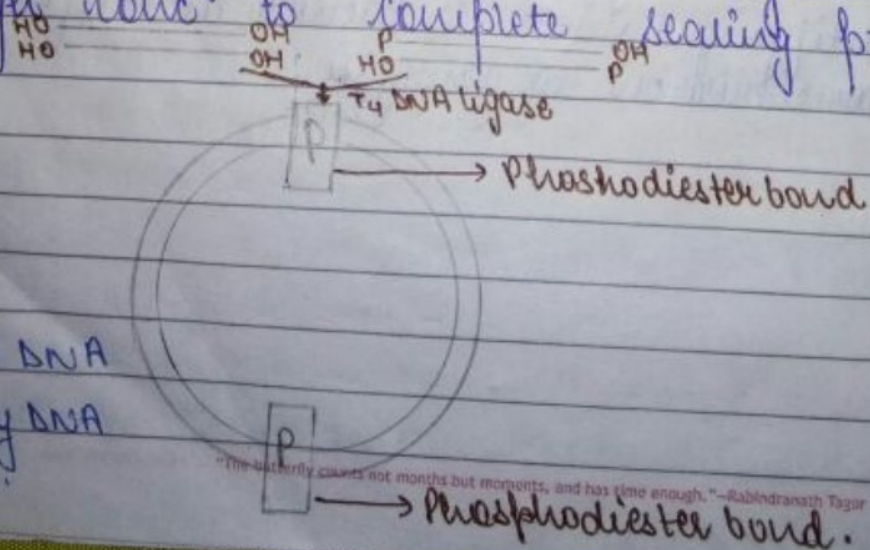 to complete sealing
HO OH P OH
HO OH HO P
T4 DNA ligase
P
Phoshodiester bond
DNA
DNA
P
"The butterfly counts not months but moments, and has time enough."–Rabindranath Tagor
Phosphodiester bond.